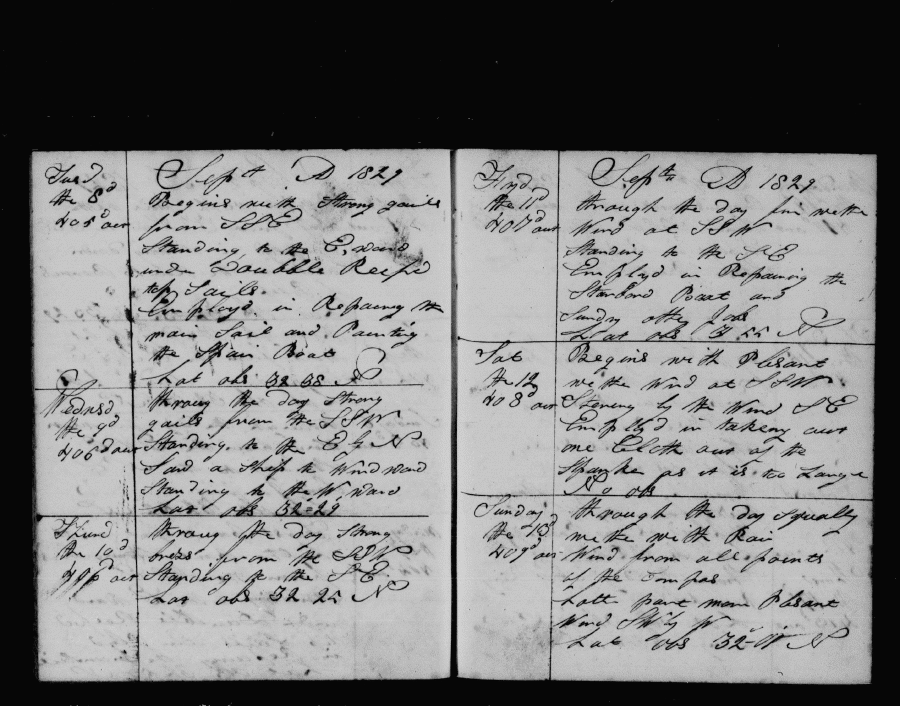 Tusd
the 8d
404d out
Septr AD 1829
Begins with Strong gails
from SSE
Standing to the E, ward
under Doubble Reefd
top Sails
Employd in Repairing the
main Sail and Painting
the Spair Boat
Lat obs 32 38 N
Wednsd
the 9d
405d out
throug the day Strong
gails from the SSW
Standing to the E by N
Saw a Ship to Windward
Standing to the W, ward
Lat obs 32=29
Thursd
the 10d
406d out
throug the day Strong
brezs from the SSW
Standing to the SE
Lat obs 32 25 N
Fryd
the 11d
407d out
Septr AD 1829
through the day fin wethe
Wind at SSW
Standing to the SE
Employd in Repairing the
Starbord Boat and
Sundry othe Jobs
Lat obs N
Sat
the 12
408d out
Begins with Plesant
wethe Wind at SSW
Stering by the Wind SE
Employd in takeng out
one Cloth out of the
Spanke as it is too Large
No obs
Sunday
the 13d
409d out
through the day Squally
wethe with Rain
Wind from all points
of the Compas
Latte part more Plesant
Wind SW by W
Lat obs 32 N